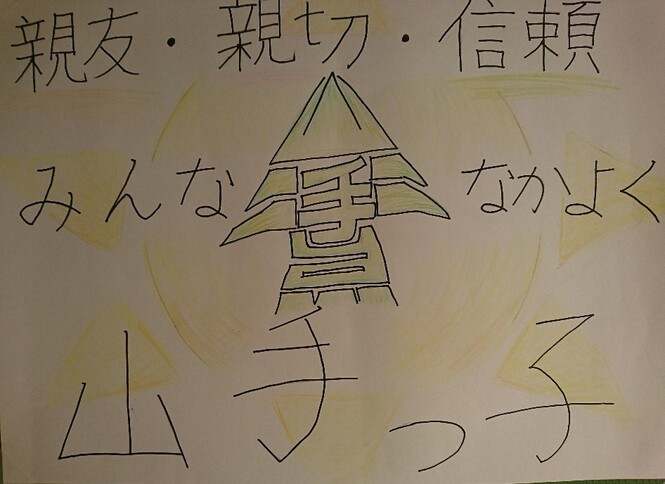 親友・親切・信頼
みんな なかよく
山手っ子